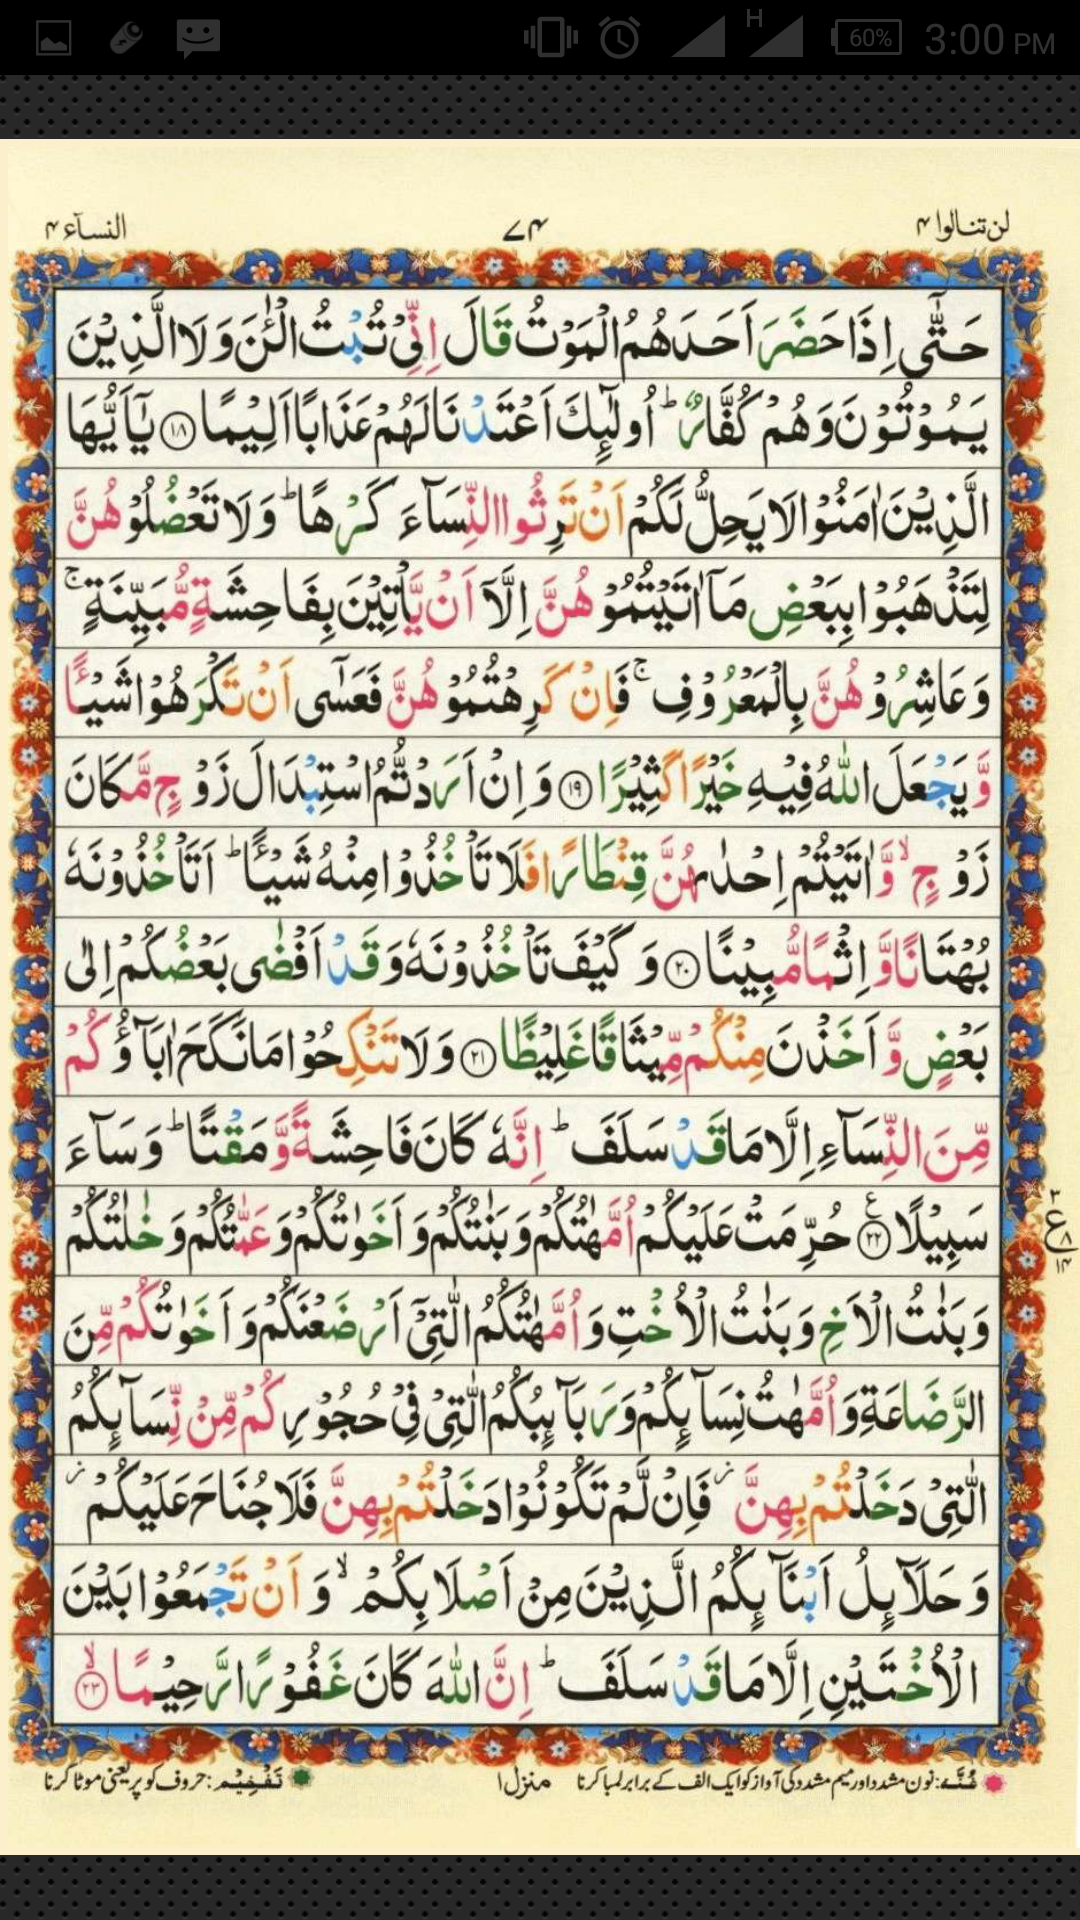 3:00 PM
60%
H
لن تنالوا ۴
۷۴
النسآء ۴
حَتّٰۤى اِذَا حَضَرَ اَحَدَهُمُ الْمَوْتُ قَالَ اِنِّیْ تُبْتُ الْـٰٔنَ وَ لَا الَّذِیْنَ
یَمُوْتُوْنَ وَ هُمْ كُفَّارٌ ؕ اُولٰٓىِٕكَ اَعْتَدْنَا لَهُمْ عَذَابًا اَلِیْمًا ۱۸ یٰۤاَیُّهَا
الَّذِیْنَ اٰمَنُوْا لَا یَحِلُّ لَكُمْ اَنْ تَرِثُوا النِّسَآءَ كَرْهًا ؕ وَ لَا تَعْضُلُوْهُنَّ
لِتَذْهَبُوْا بِبَعْضِ مَاۤ اٰتَیْتُمُوْهُنَّ اِلَّاۤ اَنْ یَّاْتِیْنَ بِفَاحِشَةٍ مُّبَیِّنَةٍ ۚ
وَ عَاشِرُوْهُنَّ بِالْمَعْرُوْفِ ۚ فَاِنْ كَرِهْتُمُوْهُنَّ فَعَسٰۤى اَنْ تَكْرَهُوْا شَیْـًٔا
وَّ یَجْعَلَ اللّٰهُ فِیْهِ خَیْرًا كَثِیْرًا ۱۹ وَ اِنْ اَرَدْتُّمُ اسْتِبْدَالَ زَوْجٍ مَّكَانَ
زَوْجٍ ۙ وَّ اٰتَیْتُمْ اِحْدٰىهُنَّ قِنْطَارًا فَلَا تَاْخُذُوْا مِنْهُ شَیْـًٔا ؕ اَتَاْخُذُوْنَهٗ
بُهْتَانًا وَّ اِثْمًا مُّبِیْنًا ۲۰ وَ كَیْفَ تَاْخُذُوْنَهٗ وَ قَدْ اَفْضٰى بَعْضُكُمْ اِلٰى
بَعْضٍ وَّ اَخَذْنَ مِنْكُمْ مِّیْثَاقًا غَلِیْظًا ۲۱ وَ لَا تَنْكِحُوْا مَا نَكَحَ اٰبَآؤُكُمْ
مِّنَ النِّسَآءِ اِلَّا مَا قَدْ سَلَفَ ؕ اِنَّهٗ كَانَ فَاحِشَةً وَّ مَقْتًا ؕ وَ سَآءَ
سَبِیْلًا ۲۲ ع حُرِّمَتْ عَلَیْكُمْ اُمَّهٰتُكُمْ وَ بَنٰتُكُمْ وَ اَخَوٰتُكُمْ وَ عَمّٰتُكُمْ وَ خٰلٰتُكُمْ
۳ ع ۸ ۱۴
وَ بَنٰتُ الْاَخِ وَ بَنٰتُ الْاُخْتِ وَ اُمَّهٰتُكُمُ الّٰتِیْۤ اَرْضَعْنَكُمْ وَ اَخَوٰتُكُمْ مِّنَ
الرَّضَاعَةِ وَ اُمَّهٰتُ نِسَآىِٕكُمْ وَ رَبَآىِٕبُكُمُ الّٰتِیْ فِیْ حُجُوْرِكُمْ مِّنْ نِّسَآىِٕكُمُ
الّٰتِیْ دَخَلْتُمْ بِهِنَّ ؗ فَاِنْ لَّمْ تَكُوْنُوْا دَخَلْتُمْ بِهِنَّ فَلَا جُنَاحَ عَلَیْكُمْ ؗ
وَ حَلَآىِٕلُ اَبْنَآىِٕكُمُ الَّذِیْنَ مِنْ اَصْلَابِكُمْ ۙ وَ اَنْ تَجْمَعُوْا بَیْنَ
الْاُخْتَیْنِ اِلَّا مَا قَدْ سَلَفَ ؕ اِنَّ اللّٰهَ كَانَ غَفُوْرًا رَّحِیْمًا ۙ ۲۳
غُنَّه: نون مشدد اور میم مشدد کی آواز کو ایک الف کے برابر لمبا کرنا
منزل ۱
تَفْخِیْم: حروف کو پر یعنی موٹا کرنا